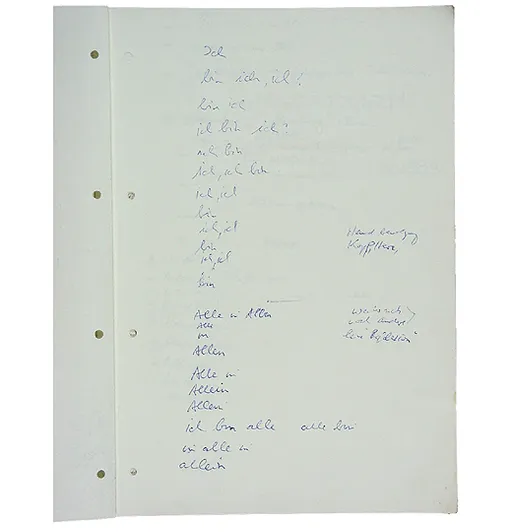 Ich
bin ich, ich?
bin ich
ich bin ich?
ich bin
ich, ich bin
ich, ich
bin
ich, ich
bin
ich, ich
bin
Handbewegung
Kopf, Herz,
Alle in Allen
Alle
in
Allen
Alle in
Allein
Allein
ich bin alle alle bin
in alle in
allein